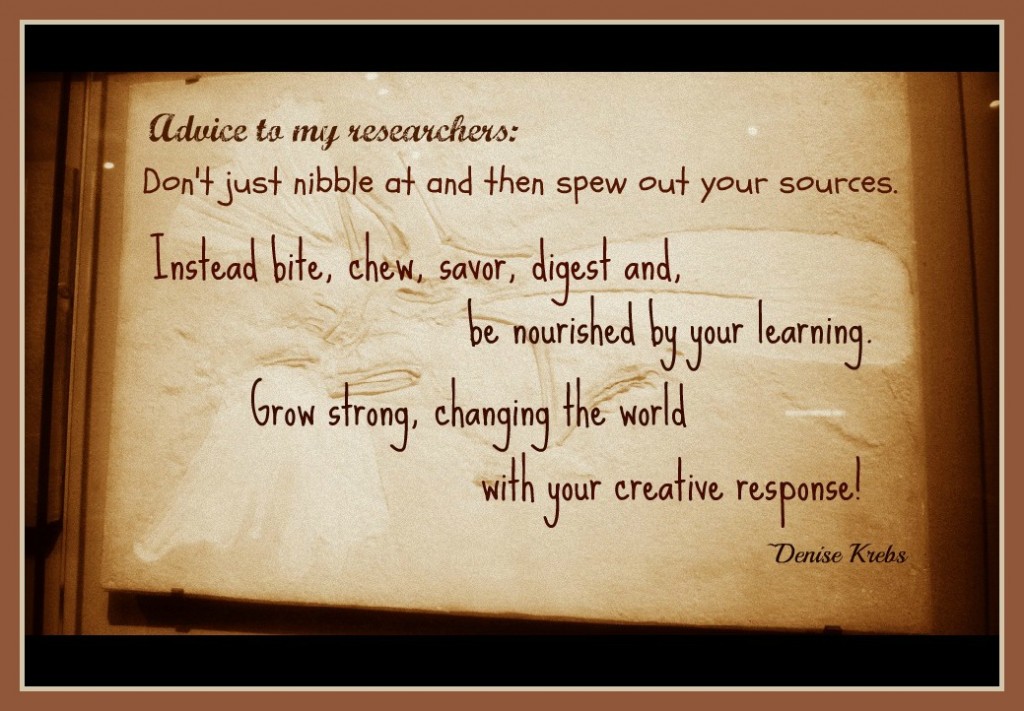 Advice to my researchers:
Don't just nibble at and then spew out your sources.
Instead bite, chew, savor, digest and,
be nourished by your learning.
Grow strong, changing the world
with your creative response!
Denise Krebs